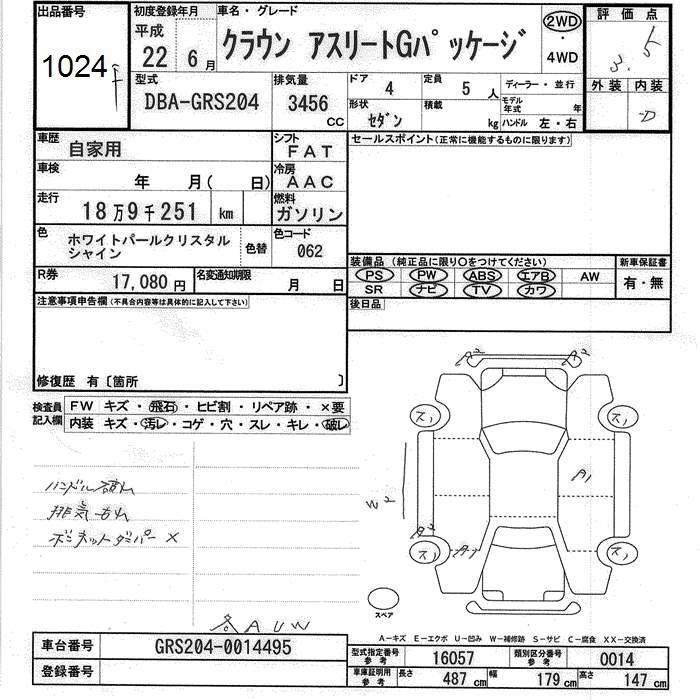 出品番号 初度登録年月 車名・グレード 評価点
1024
平成 22 6月 クラウン アスリートGパッケージ 2WD・4WD 3.5
型式 DBA-GRS204 排気量 3456 CC ドア 4 定員 5人 ディーラー・並行 外装 内装
形状 セダン 積載 kg モデル年式 年 ハンドル 左・右 D
車歴 自家用 シフト FAT セールスポイント(正常に機能するものに限ります)
車検 年 月( 日) 冷房 AAC
走行 18万9千251 km 燃料 ガソリン
色 ホワイトパールクリスタルシャイン 色替 色コード 062
装備品(純正品に限り○をつけてください) 新車保証書
PS PW ABS エアB AW 有・無
SR ナビ TV カワ
R券 17,080円 名変通知期限 月 日
後日品
注意事項申告欄(不具合内容等は具体的に記入して下さい)
修復歴 有〔箇所 〕
検査員記入欄 FW キズ・飛石・ヒビ割・リペア跡・×要
内装 キズ・汚レ・コゲ・穴・スレ・キレ・破レ
A2 A2
ス1 ス1
A1
W2
ハンドル破れ
排気もれ
ボンネットダンパー×
A2
ス1 A1 ス1
スペア
各AUW
A-キズ E-エクボ U-凹み W-補修跡 S-サビ C-腐食 XX-交換済
車台番号 GRS204-0014495
型式指定番号 参考 16057 類別区分番号 参考 0014
登録番号
車庫証明用 参考 長さ 487cm 幅 179cm 高さ 147cm